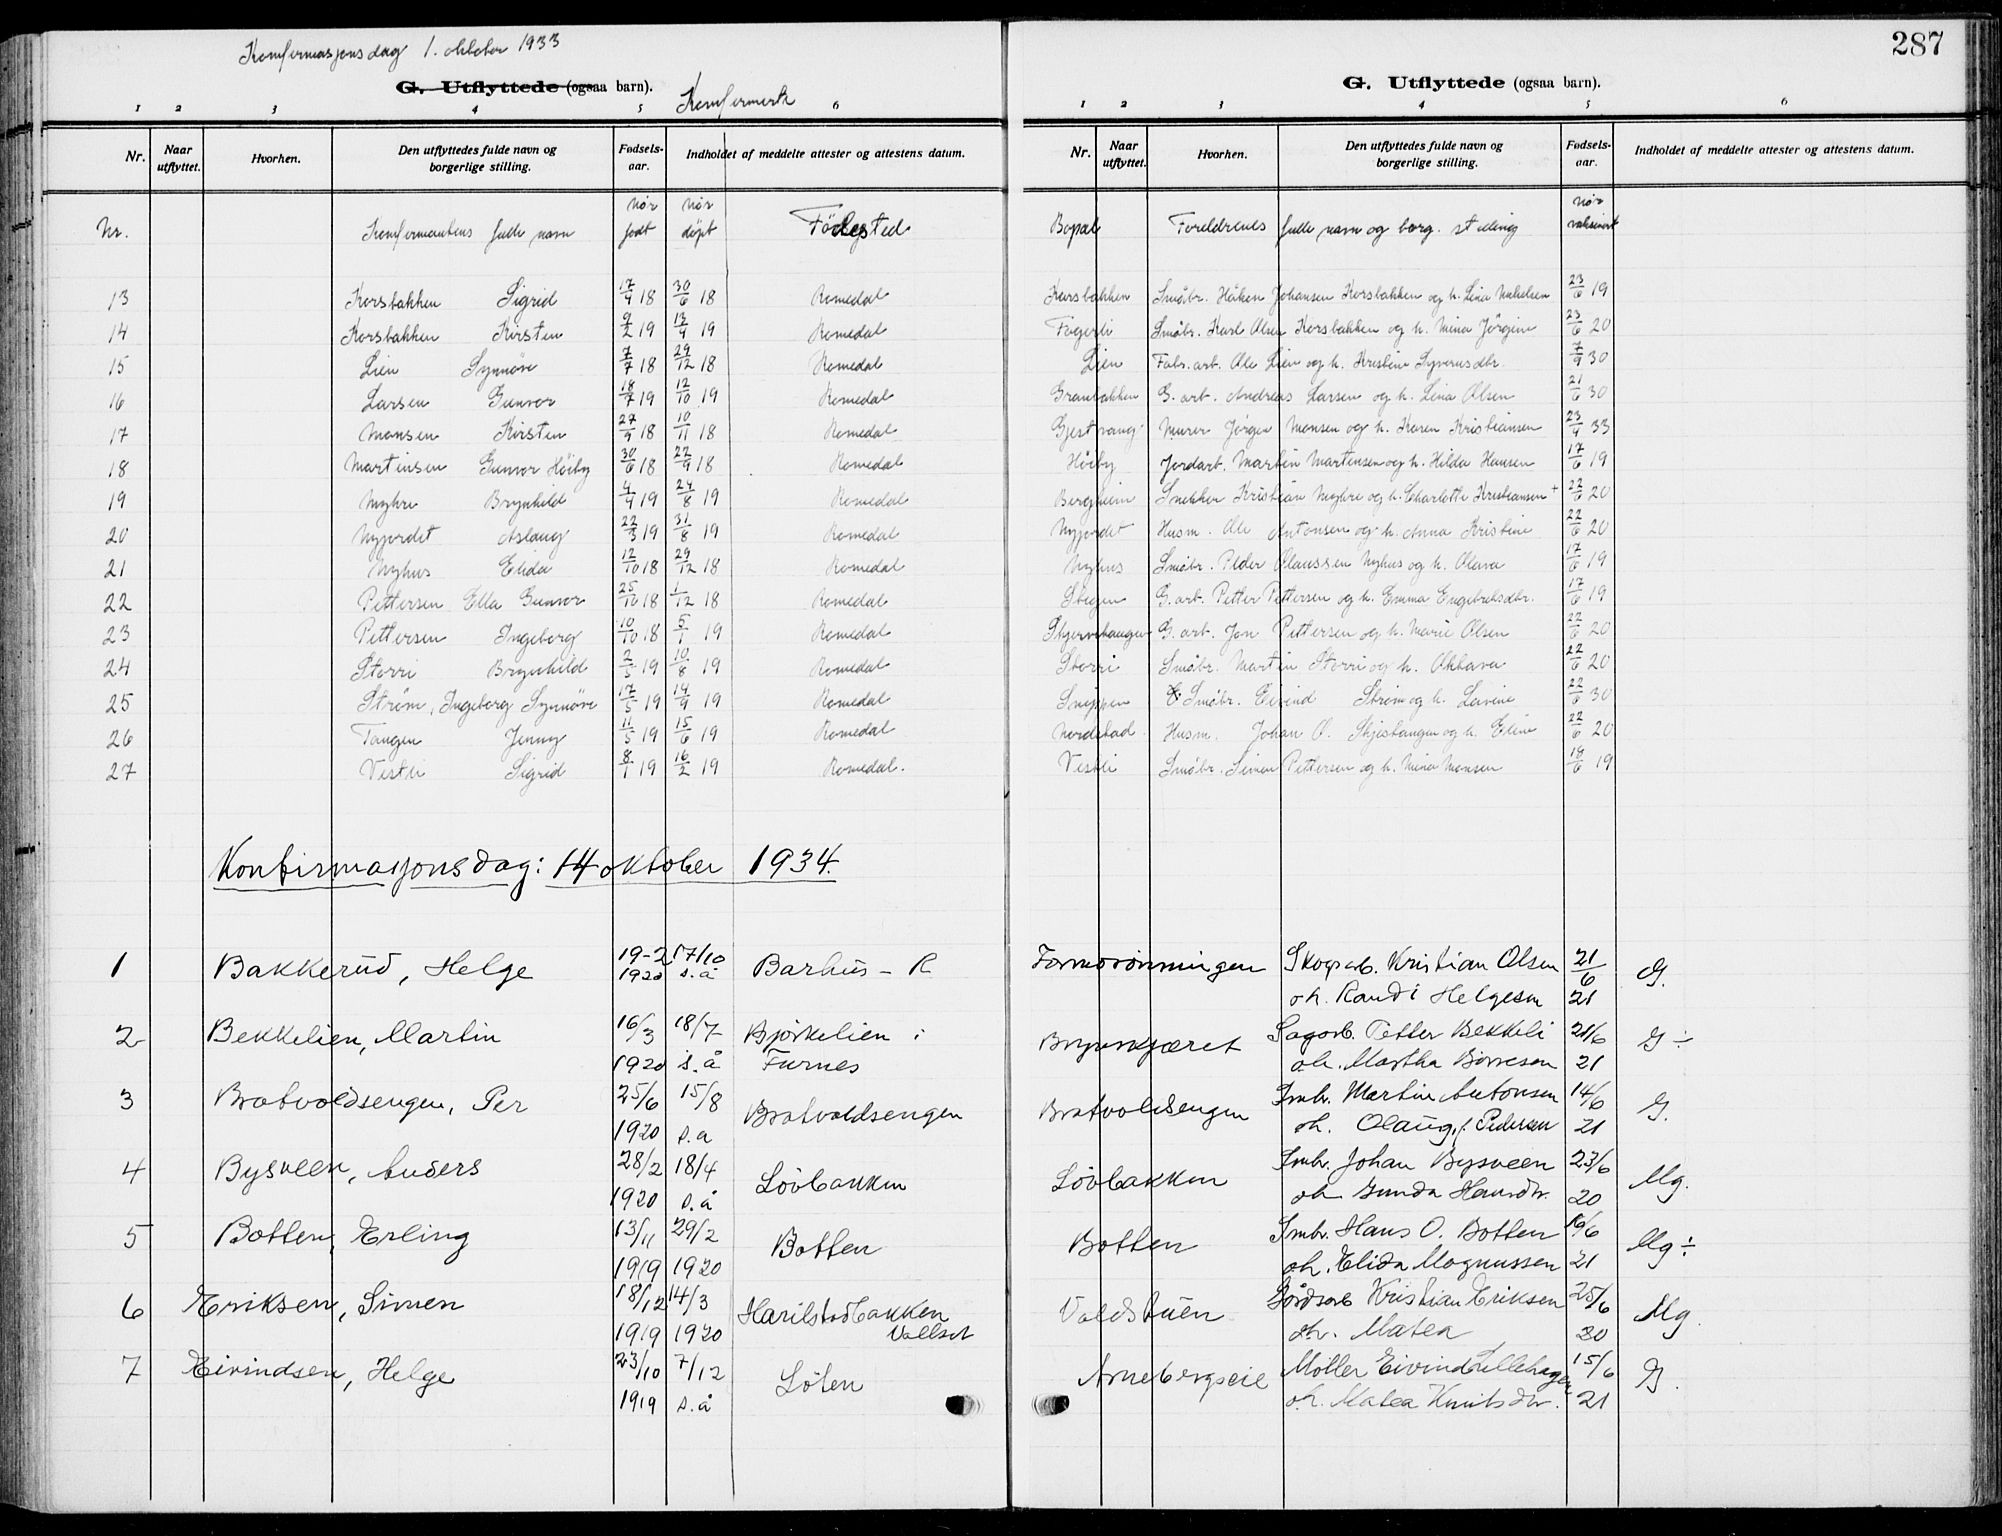 287
Konfirmasjonsdag 1. oktober 1933
G. Utflyttede (ogsaa barn).
Konfirmerte
1 2 3 4 5 6
Nr. Naar utflyttet. Hvorhen. Den utflyttedes fulde navn og borgerlige stilling. Fødsels-aar. Indholdet af meddelte attester og attestens datum.
G. Utflyttede (ogsaa barn).
1 2 3 4 5 6
Nr. Naar utflyttet. Hvorhen. Den utflyttedes fulde navn og borgerlige stilling. Fødsels-aar. Indholdet af meddelte attester og attestens datum.
Nr. Konfirmantens fulle navn Når født Når døpt Fødested Bopæl Foreldrenes fulle navn og borg. stilling Når vaksinert
13 Korsbakken Sigrid 17/4 18 30/6 18 Romedal Korsbakken Småbr. Håken Johansen Korsbakken og h. Lina Mikelsen 23/6 19
14 Korsbakken Kirsten 9/2 19 13/4 19 Romedal Fagerli Småbr. Karl Olsen Korsbakken og h. Mina Jörgine 23/6 20
15 Lien Synnöve 7/7 18 29/12 18 Romedal Lien Fabr. art. Ole Lien og h. Kristine Syverusdtr. 7/9 30
16 Larsen Gunvor 18/7 19 12/10 19 Romedal Granbakken G. art. Andreas Larsen og h. Lina Olsen 21/6 30
17 Monsen Kirsten 27/9 18 10/11 18 Romedal Gjestvang Murer Jörgen Monsen og h. Karen Kristiansen 23/4 33
18 Martinsen Gunvor Höiby 30/6 18 22/9 18 Romedal Höiby Jordarb. Martin Martinsen og h. Hilda Hansen 17/6 19
19 Myhre Brynhild 4/4 19 24/8 19 Romedal Bergheim Snekker Kristian Myhre og h. Charlotte Kristiansen + 22/6 20
20 Nyjordet Aslaug 22/3 19 31/8 19 Romedal Nyjordet Husm. Ole Antonsen og h. Anna Kristine 22/6 20
21 Nyhus Elida 12/10 18 29/12 18 Romedal Nyhus Småbr. Peder Olaussen Nyhus og h. Olava 17/6 19
22 Pettersen Ella Gunvor 25/10 18 1/12 18 Romedal Stegen G. art. Petter Pettersen og h. Emma Engebretsdtr. 17/6 19
23 Pettersen Ingeborg 10/10 18 5/1 19 Romedal Skjervehaugen G. art. Jon Pettersen og h. Marie Olsen 22/6 20
24 Storri Brynhild 2/5 19 10/8 19 Romedal Storri Småbr. Martin Storri og h. Oktava 22/6 20
25 Ström, Ingeborg Synnöve 17/5 19 14/9 19 Romedal Sneppen Småbr. Eivind Ström og h. Lovine 22/6 30
26 Tangen Jenny 11/5 19 15/6 19 Romedal Nordstad Husm. Johan O. Skjestangen og h. Eline 22/6 20
27 Vestli Sigrid 8/1 19 16/2 19 Romedal. Vestli Småbr. Simen Pettersen og h. Mina Monsen 18/6 19
Konfirmasjonsdag: 14 oktober 1934.
1 Bakkerud, Helge 19-2 17/10 Barhus - R Formorönningen Skogsarb. Kristian Olsen 21/6 G.
1920 s.å oh. Randi Helgesen 21
2 Bekkelien, Martin 16/3 18/7 Bjørkelien i Brynskjæret Sagarb. Petter Bekkeli 21/6 G ÷
1920 s.å Furnes oh. Martha Børresen 21
3 Bratvoldsengen, Per 25/6 15/8 Bratvoldsengen Bratvoldsengen Smbr. Martin Antonsen 14/6 G.
1920 s.a oh. Olaug f. Pedersen 21
4 Bysveen, Anders 28/2 18/4 Løvbakken Løvbakken Smbr. Johan Bysveen 23/6 Mg.
1920 s.å oh Gunda Hansdtr. 20
5 Botten, Erling 13/11 29/2 Botten Botten Smbr. Hans O. Botten 16/6 Mg ÷
1919 1920 oh. Elida Magnussen 21
6 Eriksen, Simen 18/12 14/3 Harilstadbakken Voldstuen Gårdsarb Kristian Eriksen 25/6 Mg.
1919 1920 Vallset oh. Matea 30
7 Eivindsen, Helge 23/10 7/12 Løten Arnebergseie Møller Eivind Lillehagen 15/6 G.
1919 s.å o.h. Matea Knutsdtr. 21